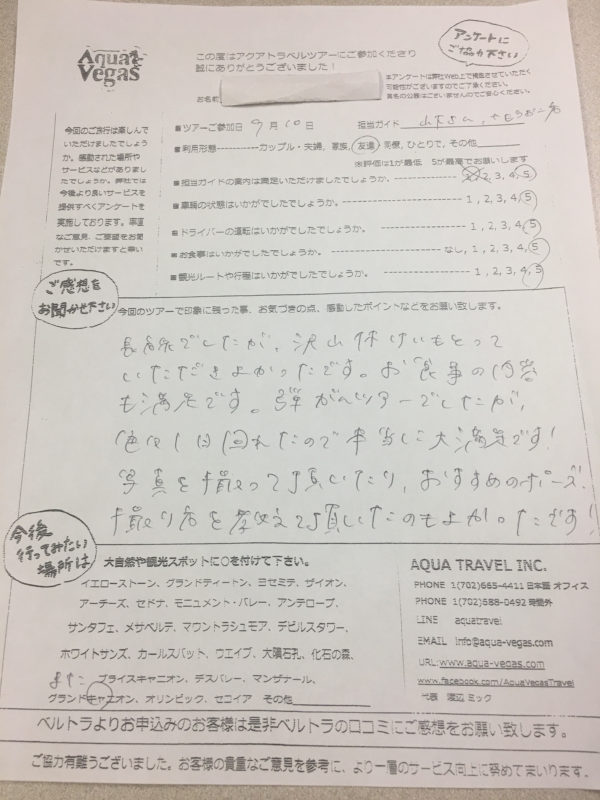 Aqua Vegas
この度はアクアトラベルツアーにご参加くださり
誠にありがとうございました！
アンケートに
ご協力下さい
お名前
本アンケートは弊社Web上で掲載させていただく
可能性がございますのでご了承ください。
実名の公表はございませんのでご安心ください。
今回のご旅行は楽しんで
いただけましたでしょう
か。感動された場所や
サービスなどがありまし
たでしょうか。弊社では
今後より良いサービスを
提供すべくアンケートを
実施しております。率直
なご意見、ご要望をお聞
かせいただけますと幸い
です。
■ツアーご参加日 9月10日 担当ガイド 山下さん、
■利用形態-----------カップル・夫婦, 家族, 友達, 同僚, ひとりで, その他
※評価は1が最低、5が最高でお願いします
■担当ガイドの案内は満足いただけましたでしょうか。 2, 3, 4, 5
■車輌の状態はいかがでしたでしょうか。 1, 2, 3, 4, 5
■ドライバーの運転はいかがでしたでしょうか。 1, 2, 3, 4, 5
■お食事はいかがでしたでしょうか。 なし, 1, 2, 3, 4, 5
■観光ルートや行程はいかがでしたでしょうか。 1, 2, 3, 4, 5
ご感想を
お聞かせ下さい
今回のツアーで印象に残った事、お気づきの点、感動したポイントなどをお願い致します。
長旅でしたが、沢山休けいもとって
いただきよかったです。お食事の内容
も満足です。弾がんツアーでしたが、
色々1日回れたので本当に大満足です！
写真を撮って頂いたり、おすすめのポーズ、
撮り方を教えて頂いたのもよかったです！
今後
行ってみたい
場所は
大自然や観光スポットに○を付けて下さい。
イエローストーン、グランドティートン、ヨセミテ、ザイオン、
アーチーズ、セドナ、モニュメント・バレー、アンテロープ、
サンタフェ、メサベルテ、マウントラシュモア、デビルスタワー、
ホワイトサンズ、カールスバット、ウエイブ、大隕石孔、化石の森、
また ブライスキャニオン、デスバレー、マンザナール、
グランドキャニオン、オリンピック、セコイア その他
AQUA TRAVEL INC.
PHONE 1(702)665-4411 日本語 オフィス
PHONE 1(702)588-0492 時間外
LINE aquatravel
EMAIL info@aqua-vegas.com
URL: www.aqua-vegas.com
www.facebook.com/AquaVegasTravel
代表 渡辺 ミック
ベルトラよりお申込みのお客様は是非ベルトラの口コミにご感想をお願い致します。
ご協力有難うございました。お客様の貴重なご意見を参考に、より一層のサービス向上に努めてまいります。